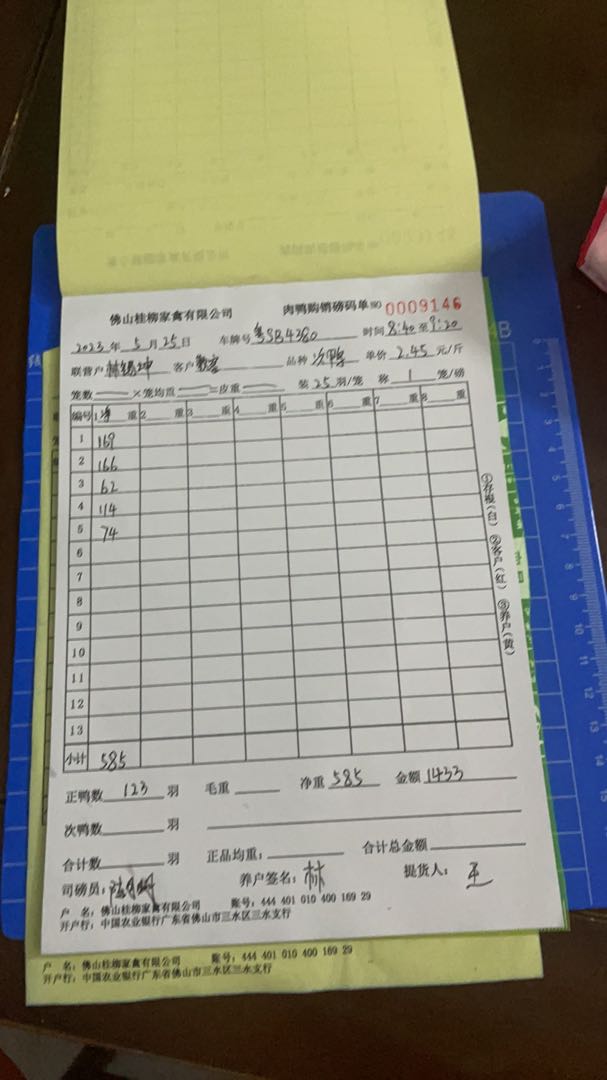 佛山桂柳家禽有限公司 肉鸭购销磅码单 NO 0009146
2023年 5月 25日 车牌号 粤SB4380 时间 8:40 至 9:20
联营户 林 坤 客户 品种 次鸭 单价 2.45 元/斤
笼数 ×笼均重 =皮重 装 25 羽/笼 称 1 笼/磅
编号 1净 重 2 重 3 重 4 重 5 重 6 重 7 重 8 重
1 169
2 166
3 62
4 114
5 74
6
7
8
9
10
11
12
13
小计 585
①存根(白) ②客户(红) ③养户(黄)
正鸭数 123 羽 毛重 净重 585 金额 1433
次鸭数 羽
合计数 羽 正品均重: 合计总金额
司磅员: 养户签名: 林 提货人: 王
户 名: 佛山桂柳家禽有限公司 账号: 444 401 010 400 169 29
开户行: 中国农业银行广东省佛山市三水区三水支行
户 名: 佛山桂柳家禽有限公司 账号: 444 401 010 400 169 29
开户行: 中国农业银行广东省佛山市三水区三水支行